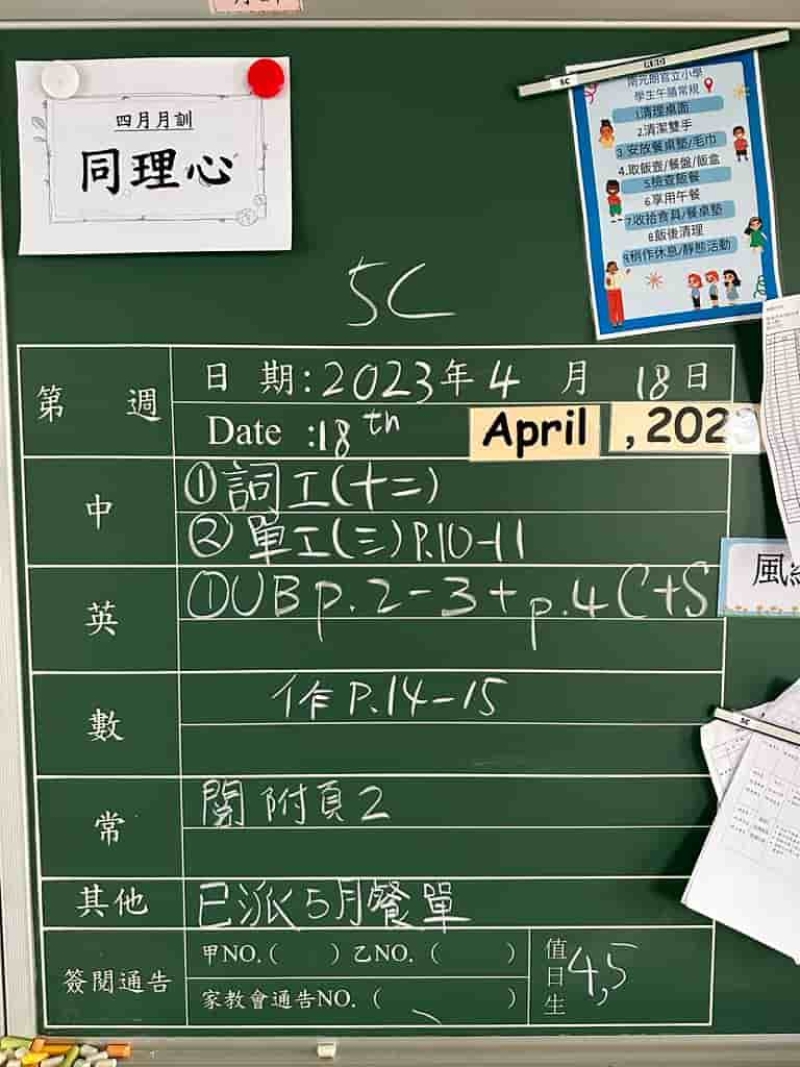 四月月訓
同理心
南元朗官立小學
學生午膳常規
1.清理桌面
2.清潔雙手
3.安放餐桌墊/毛巾
4.取飯壺/餐盤/飯盒
5.檢查飯餐
6.享用午餐
7.收拾食具/餐桌墊
8.飯後清理
9.稍作休息/靜態活動
5C
第 週
日 期:2023年4月18日
Date :18th April ,202
中
①詞工(十二)
②單工(三)P.10-11
英
①UBp.2-3+p.4C+S
數
作P.14-15
常
閱附頁2
其他
已派5月餐單
簽閱通告
甲NO.( ) 乙NO.( )
家教會通告NO.( )
值日生
4,5
5C
5C